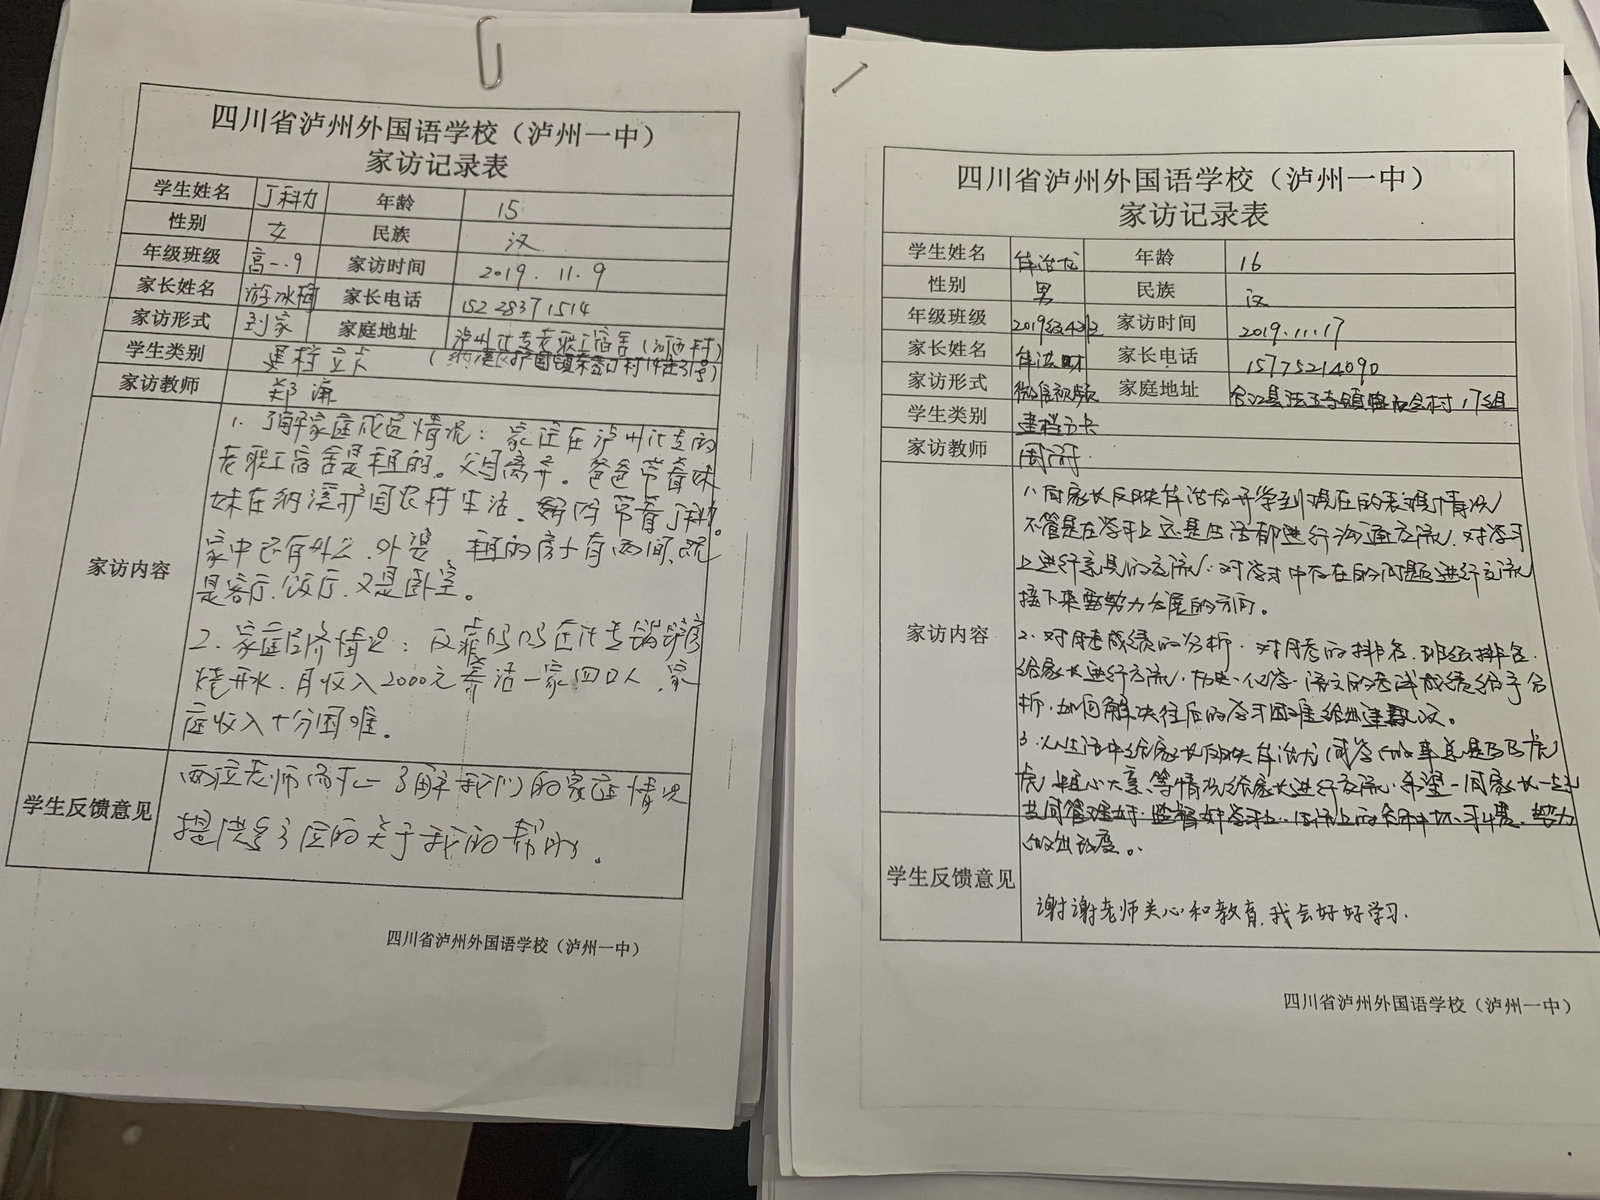 四川省泸州外国语学校（泸州一中）
家访记录表
学生姓名 丁科力 年龄 15
性别 女 民族 汉
年级班级 高一.9 家访时间 2019.11.9
家长姓名 游冰梅 家长电话 152 2837 1514
家访形式 到家 家庭地址 泸州计专老职工宿舍（河西村）
学生类别 建档立卡
家访教师 郑廉
家访内容
1. 了解家庭成员情况：家住在泸州计专的
老职工宿舍是租的。父母离异。爸爸带着妹
妹在纳溪护国农村生活。妈妈带着丁科力。
家中还有外公、外婆，租的房子有两间，既
是客厅、饭厅、又是卧室。
2. 家庭经济情况：仅靠妈妈在计专锅炉房
烧开水，月收入2000元养活一家四口人，家
庭收入十分困难。
学生反馈意见
两位老师 了解我们的家庭情况
提供多方面的关于我的帮助。
四川省泸州外国语学校（泸州一中）
四川省泸州外国语学校（泸州一中）
家访记录表
学生姓名 治龙 年龄 16
性别 男 民族 汉
年级班级 2019级43班 家访时间 2019.11.17
家长姓名 家长电话 15775214090
家访形式 微信视频 家庭地址 合江县法王寺镇 村17组
学生类别 建档立卡
家访教师 周
家访内容
1. 向家长反映 治龙开学到现在的表现情况
不管是在学习上还是生活都进行沟通交流，对学习
上进行亲具的交流，对学习中存在的问题进行交流
接下来要努力发展的方向。
2. 对月考成绩的分析，对月考的排名，班级排名，
给家长进行交流，历史、化学、语文的考试成绩给予分
析，如何解决往后的学习困难给出建议。
3. 从生活中给家长反映 治龙同学做事总是马马虎
虎，粗心大意等情况给家长进行交流，希望一同家长一起
共同管理好，监督好学习上、生活上的各种坏习惯，努力
做出改变。
学生反馈意见
谢谢老师关心和教育，我会好好学习.
四川省泸州外国语学校（泸州一中）